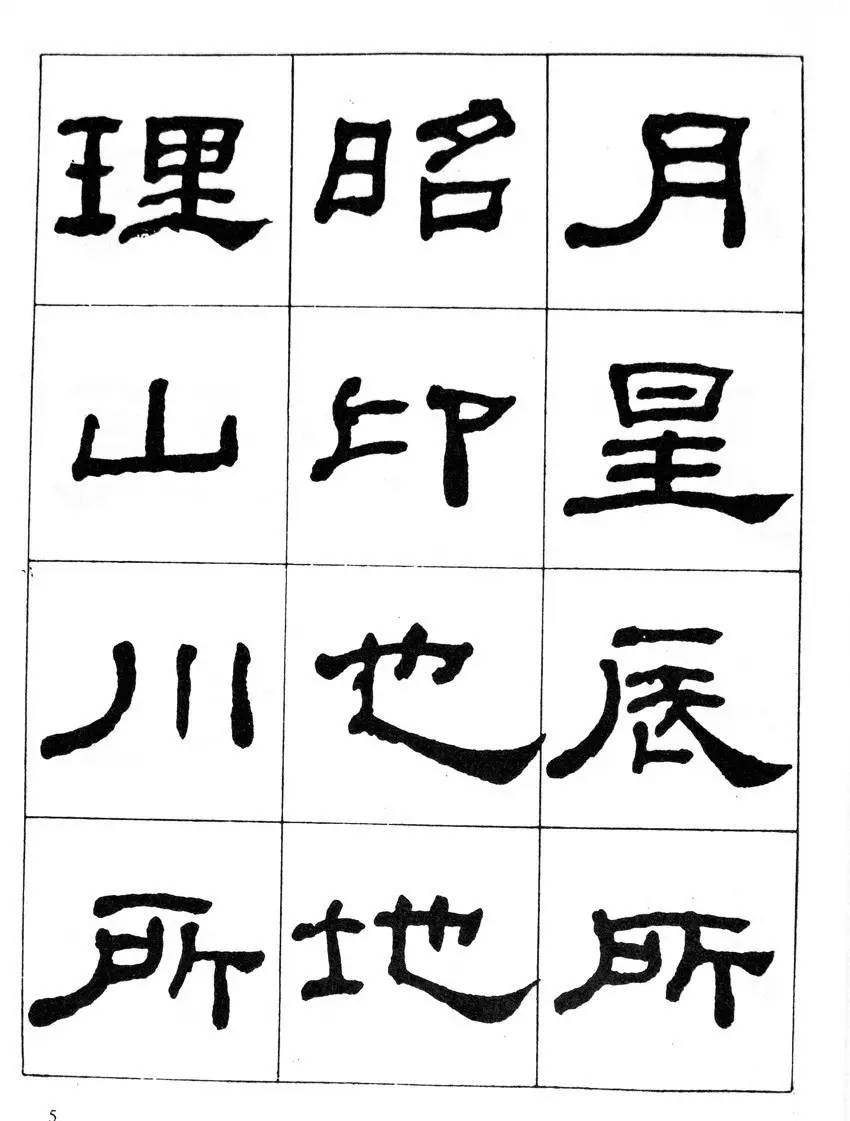 月星辰所
昭卬也地
理山川所
5